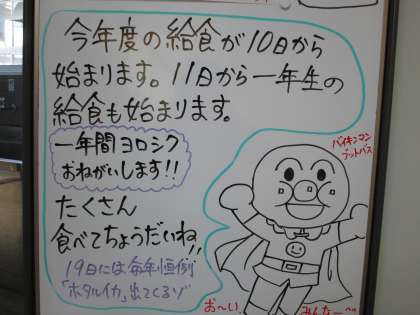 今年度の給食が10日から
始まります。11日から一年生の
給食も始まります。
一年間ヨロシク
おねがいします!!
たくさん
食べてちょうだいね!!
19日には毎年恒例
「ホタルイカ」出てくるゾ
バイキンマン
ブットバス
お〜い
みんなー